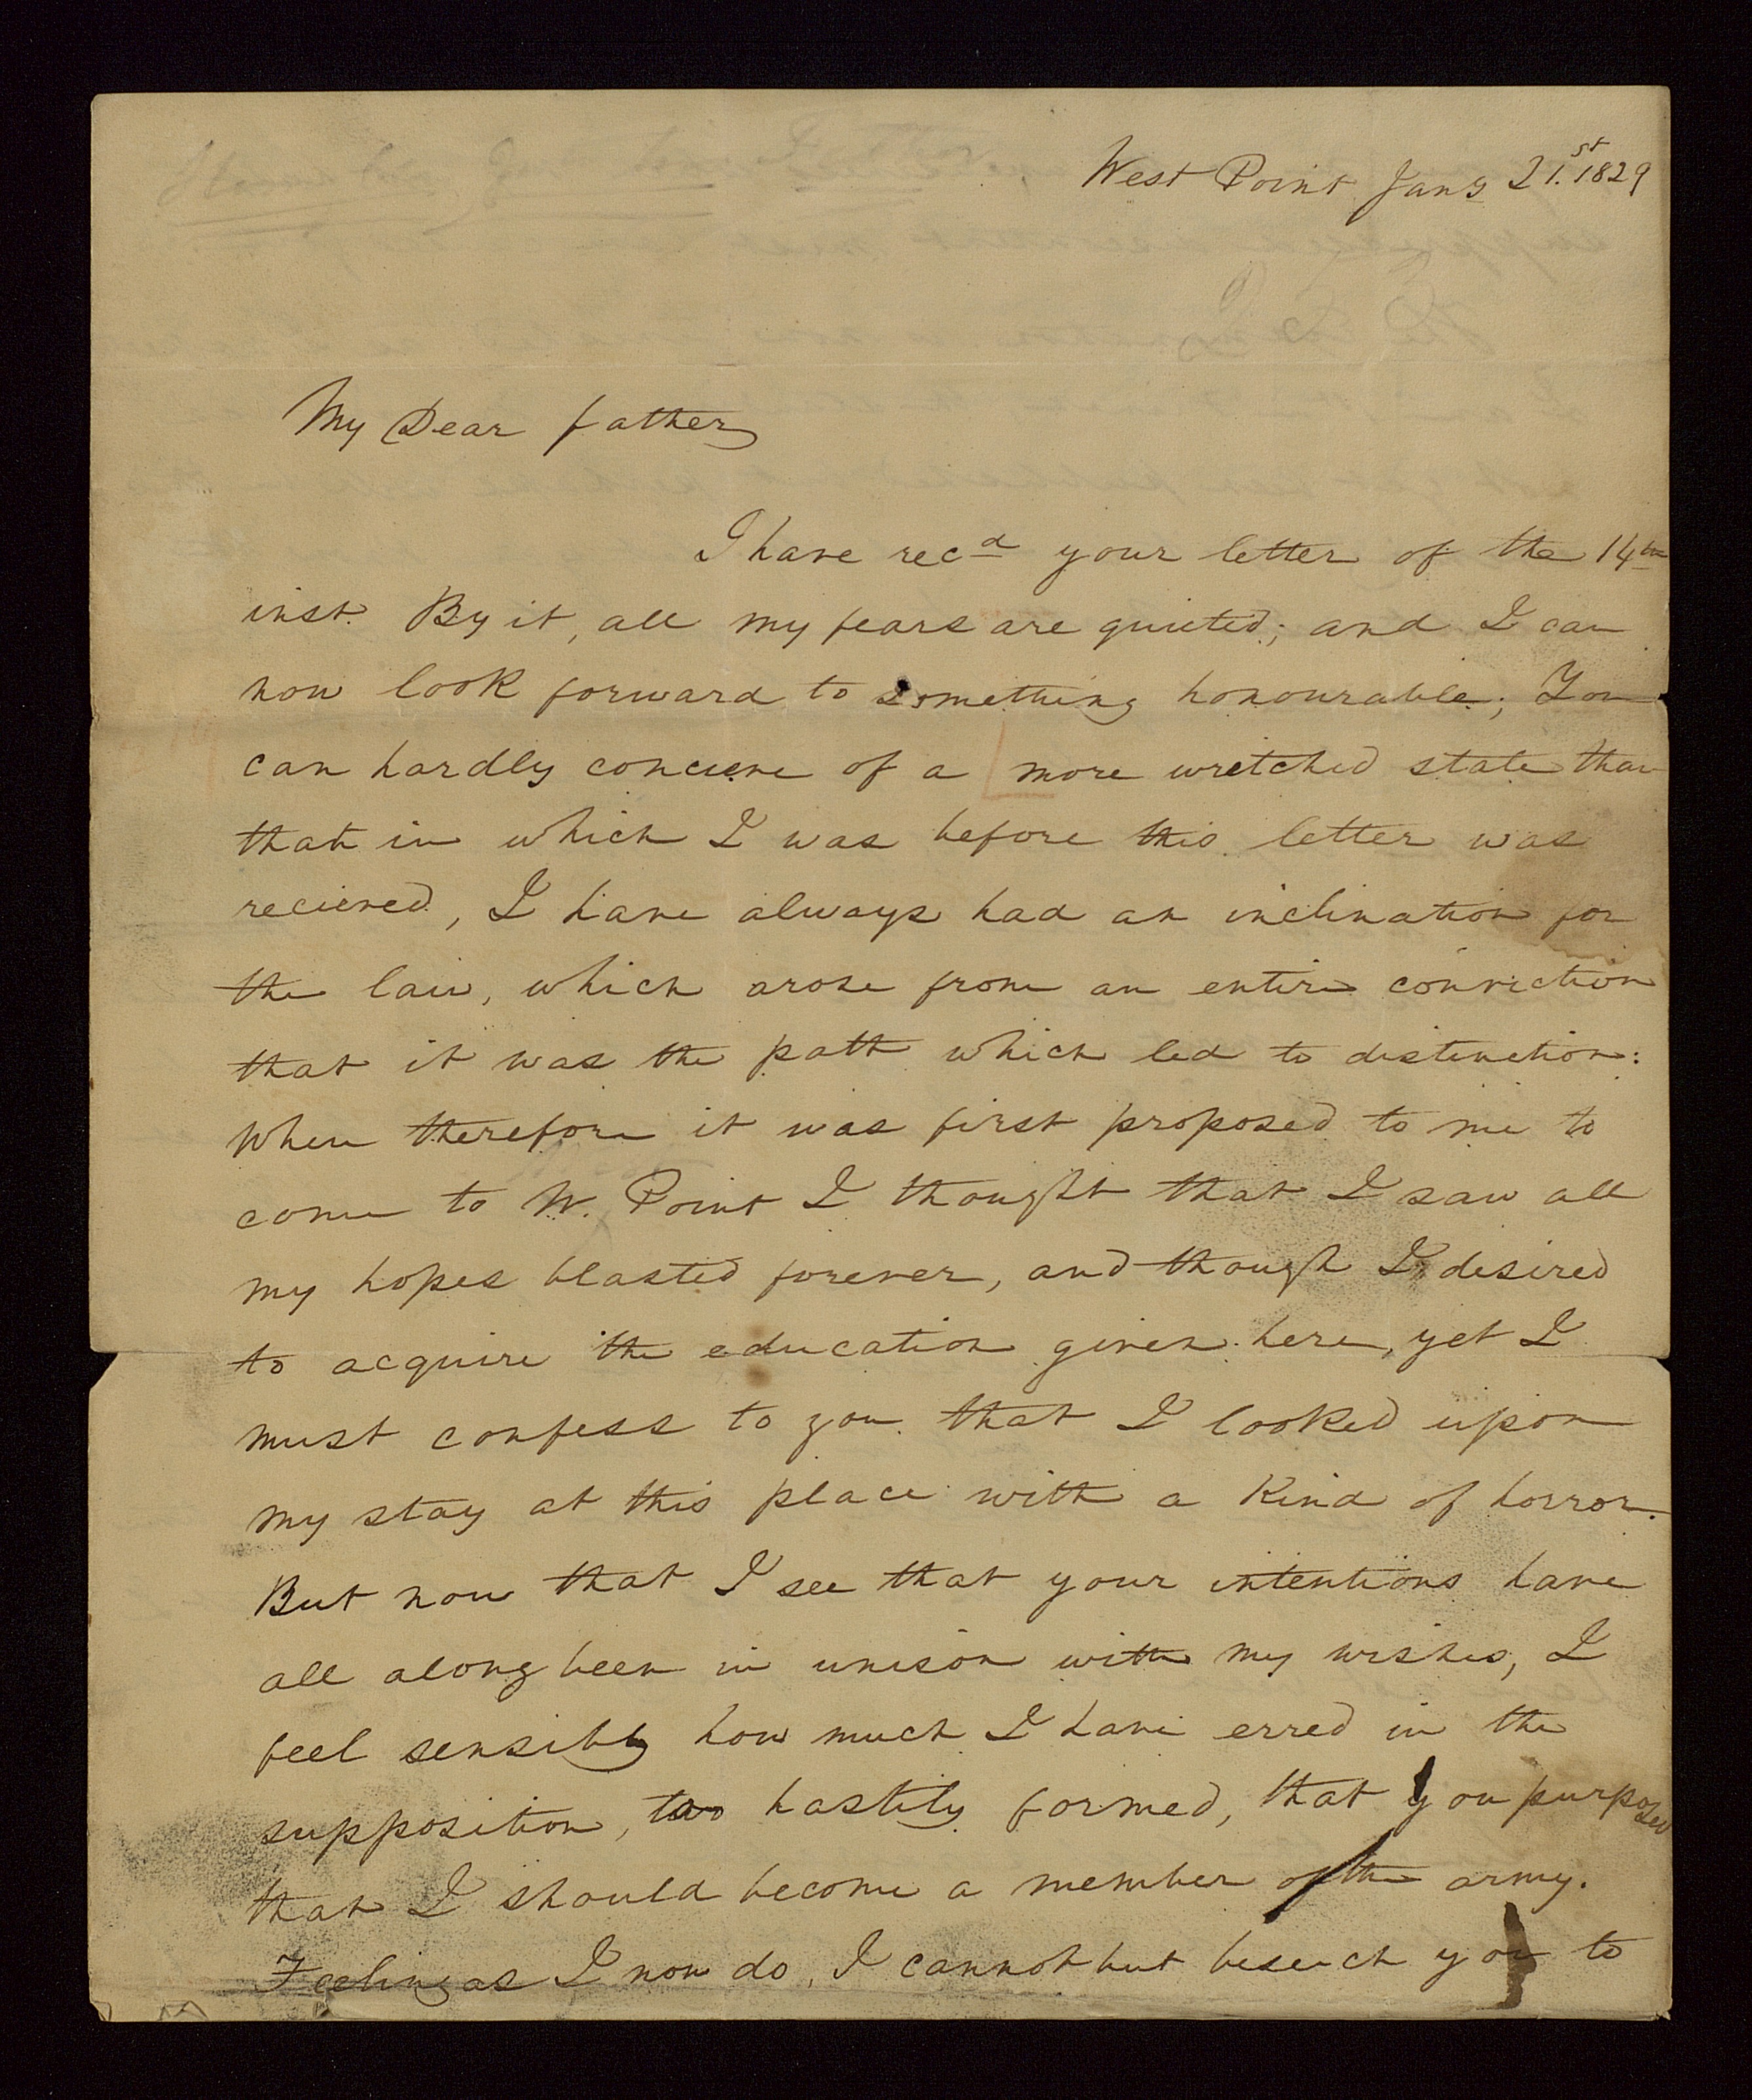 West Point Jany 21.st 1829
My Dear father
I have recd your letter of the 14th
inst. By it, all my fears are quieted; and I can
now look forward to something honourable; You
can hardly concieve of a more wretched state than
that in which I was before this letter was
recieved, I have always had an inclination for
the law, which arose from an entire conviction
that it was the path which led to distinction:
When therefore it was first proposed to me to
come to W. Point I thought that I saw all
my hopes blasted forever, and though I desired
to acquire the education given here, yet I
must confess to you that I looked upon
my stay at this place with a kind of horror.
But now that I see that your intentions have
all along been in unison with my wishes, I
feel sensibly how much I have erred in the
supposition, too hastily formed, that you purposed
that I should become a member of the army.
Feeling as I now do, I cannot but beseech you to